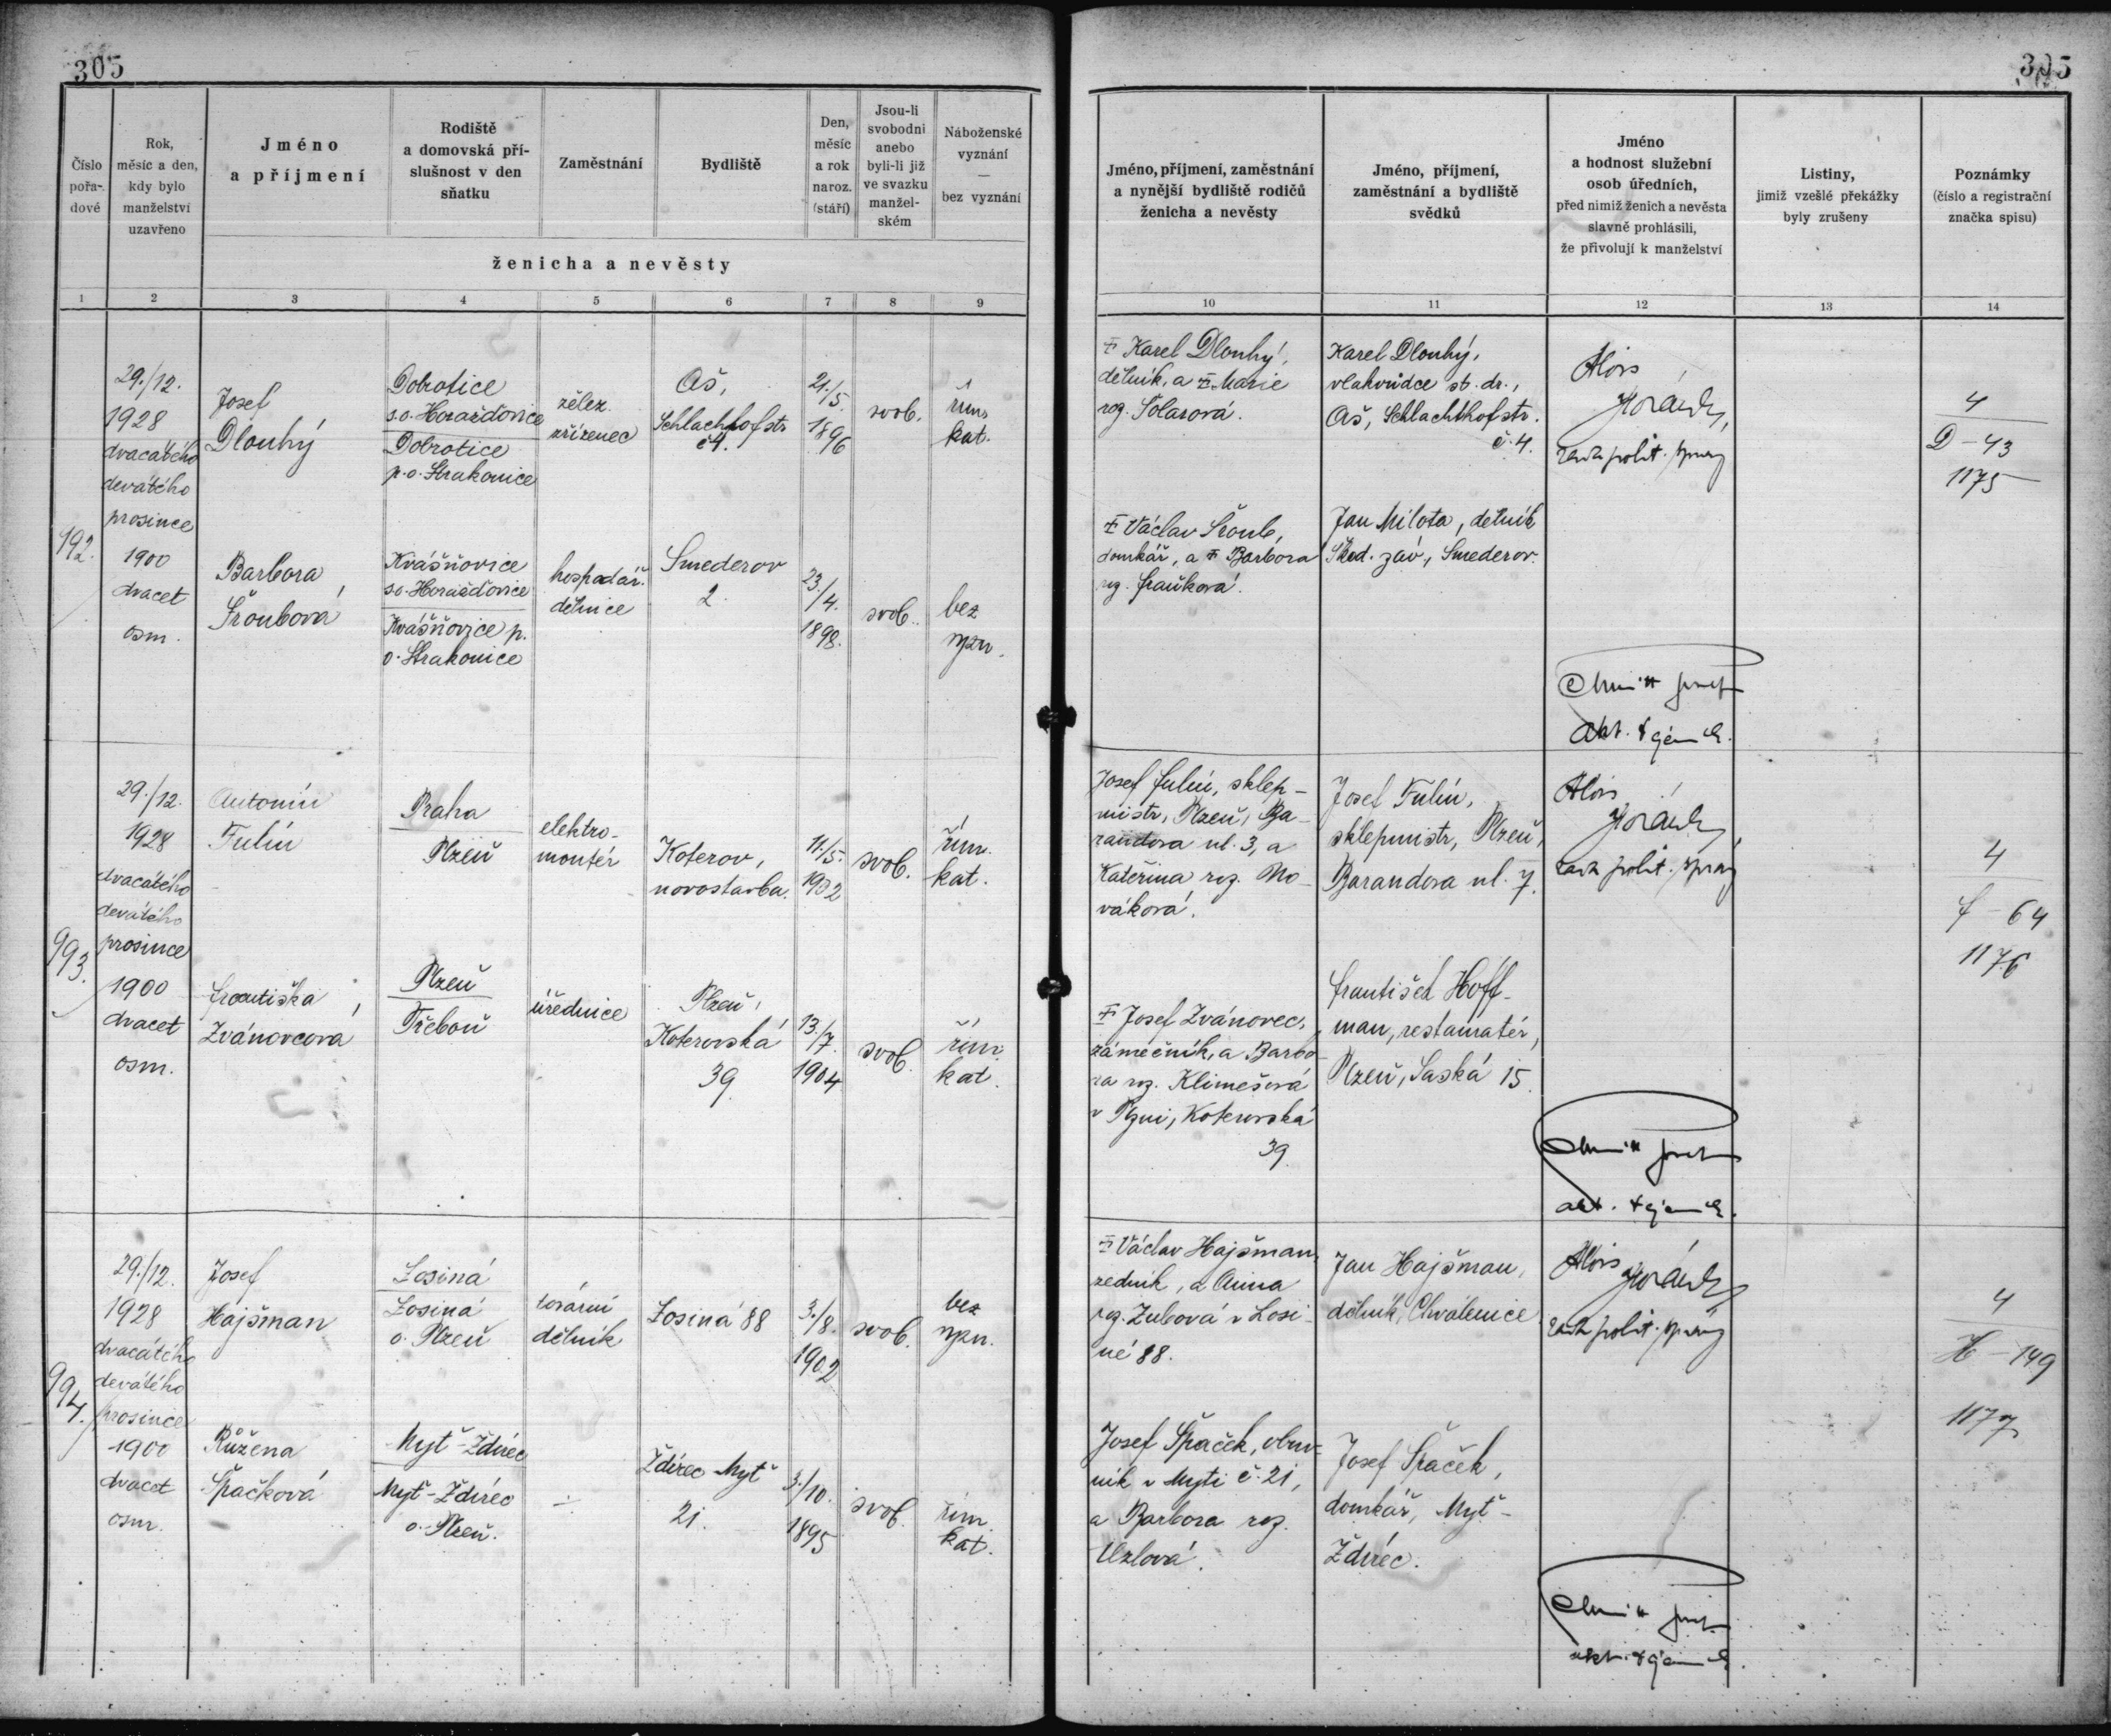 305
305
Číslo
pořa-
dové
Rok,
měsíc a den,
kdy bylo
manželství
uzavřeno
Jméno
a příjmení
Rodiště
a domovská pří-
slušnost v den
sňatku
Zaměstnání
Bydliště
Den,
měsíc
a rok
naroz.
(stáří)
Jsou-li
svobodni
anebo
byli-li již
ve svazku
manžel-
ském
Náboženské
vyznání
—
bez vyznání
ženicha a nevěsty
Jméno, příjmení, zaměstnání
a nynější bydliště rodičů
ženicha a nevěsty
Jméno, příjmení,
zaměstnání a bydliště
svědků
Jméno
a hodnost služební
osob úředních,
před nimiž ženich a nevěsta
slavně prohlásili,
že přivolují k manželství
Listiny,
jimiž vzešlé překážky
byly zrušeny
Poznámky
(číslo a registrační
značka spisu)
1 2 3 4 5 6 7 8 9 10 11 12 13 14
992.
29./12.
1928
dvacátého
devátého
prosince
1900
dvacet
osm.
Josef
Dlouhý
Dobrotice
s.o. Horažďovice
Dobrotice
p.o. Strakonice
želez.
zřízenec
Aš,
Schlachthofstr
č4.
21./5.
1896
svob.
řím.
kat.
Karel Dlouhý,
dělník, a Marie
roz. Solarová.
Karel Dlouhý,
vlakvůdce st. dr.,
Aš, Schlachthofstr.
č. 4.
Alois
Horák,
rada polit. správy
4
D-43
1175
Barbora
Šroubová
Kvášňovice
s.o. Horažďovice
Kvášňovice p.
o. Strakonice
hospodář.
dělnice
Smederov
2.
23./4.
1898.
svob.
bez
vyzn.
Václav Šroub,
domkář, a Barbora
roz. Fraňková.
Jan Milota, dělník
Škod. záv., Smederov.
993.
29./12.
1928
dvacátého
devátého
prosince
1900
dvacet
osm.
Antonín
Fulín
Praha
Plzeň
elektro-
montér
Koterov,
novostavba.
11./5.
1902
svob.
řím.
kat.
Josef Fulín, sklep-
mistr, Plzeň, Ba-
randova ul. 3, a
Kateřina roz. No-
váková.
Josef Fulín,
sklepmistr, Plzeň,
Barandova ul. 7.
Alois
Horák,
rada polit. správy
4
F-64
1176
Františka
Zvánovcová
Plzeň
Třeboň
úřednice
Plzeň,
Koterovská
39
13./7.
1904
svob.
řím.
kat.
Josef Zvánovec,
zámečník, a Barbo-
ra roz. Klimešová
v Plzni, Koterovská
39.
František Hoff-
man, restauratér,
Plzeň, Saská 15.
994.
29./12.
1928
dvacátého
devátého
prosince
1900
dvacet
osm.
Josef
Hajšman
Losiná
Losiná
o. Plzeň
tovární
dělník
Losiná 88
3./8.
1902
svob.
bez
vyzn.
Václav Hajšman,
zedník, a Anna
roz. Zubová v Losi-
né 88.
Jan Hajšman,
dělník, Chválenice
Alois
Horák,
rada polit. správy
4
H-149
1177
Růžena
Špačková
Mýť-Ždírec
Mýť-Ždírec
o. Plzeň.
Ždírec-Mýť
21.
3./10.
1895
svob.
řím.
kat.
Josef Špaček, obuv-
ník v Mýti č. 21,
a Barbora roz.
Uzlová.
Josef Špaček,
domkář, Mýť-
Ždírec.